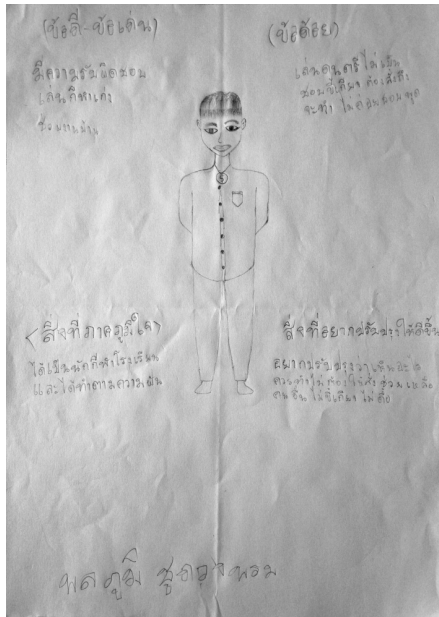 (ข้อดี-ข้อเด่น)
มีความรับผิดชอบ
เล่นกีฬาเก่ง
ชื่องานบ้าน
(ข้อด้อย)
เล่นดนตรีไม่เป็น
ชอบขี้เกียจ ต้องสั่งถึง
จะทำ ไม่ค่อยยอม
<สิ่งที่ภาคภูมิใจ>
ได้เป็นนักกีฬาโรงเรียน
และได้ทำตามความฝัน
สิ่งที่อยากปรับปรุงให้ดีขึ้น
อยากปรับปรุง
ไม่ต้องให้สั่ง ช่วยเหลือ
คนอื่น ไม่ขี้เกียจ ไม่ดื้อ
พลภูมิ